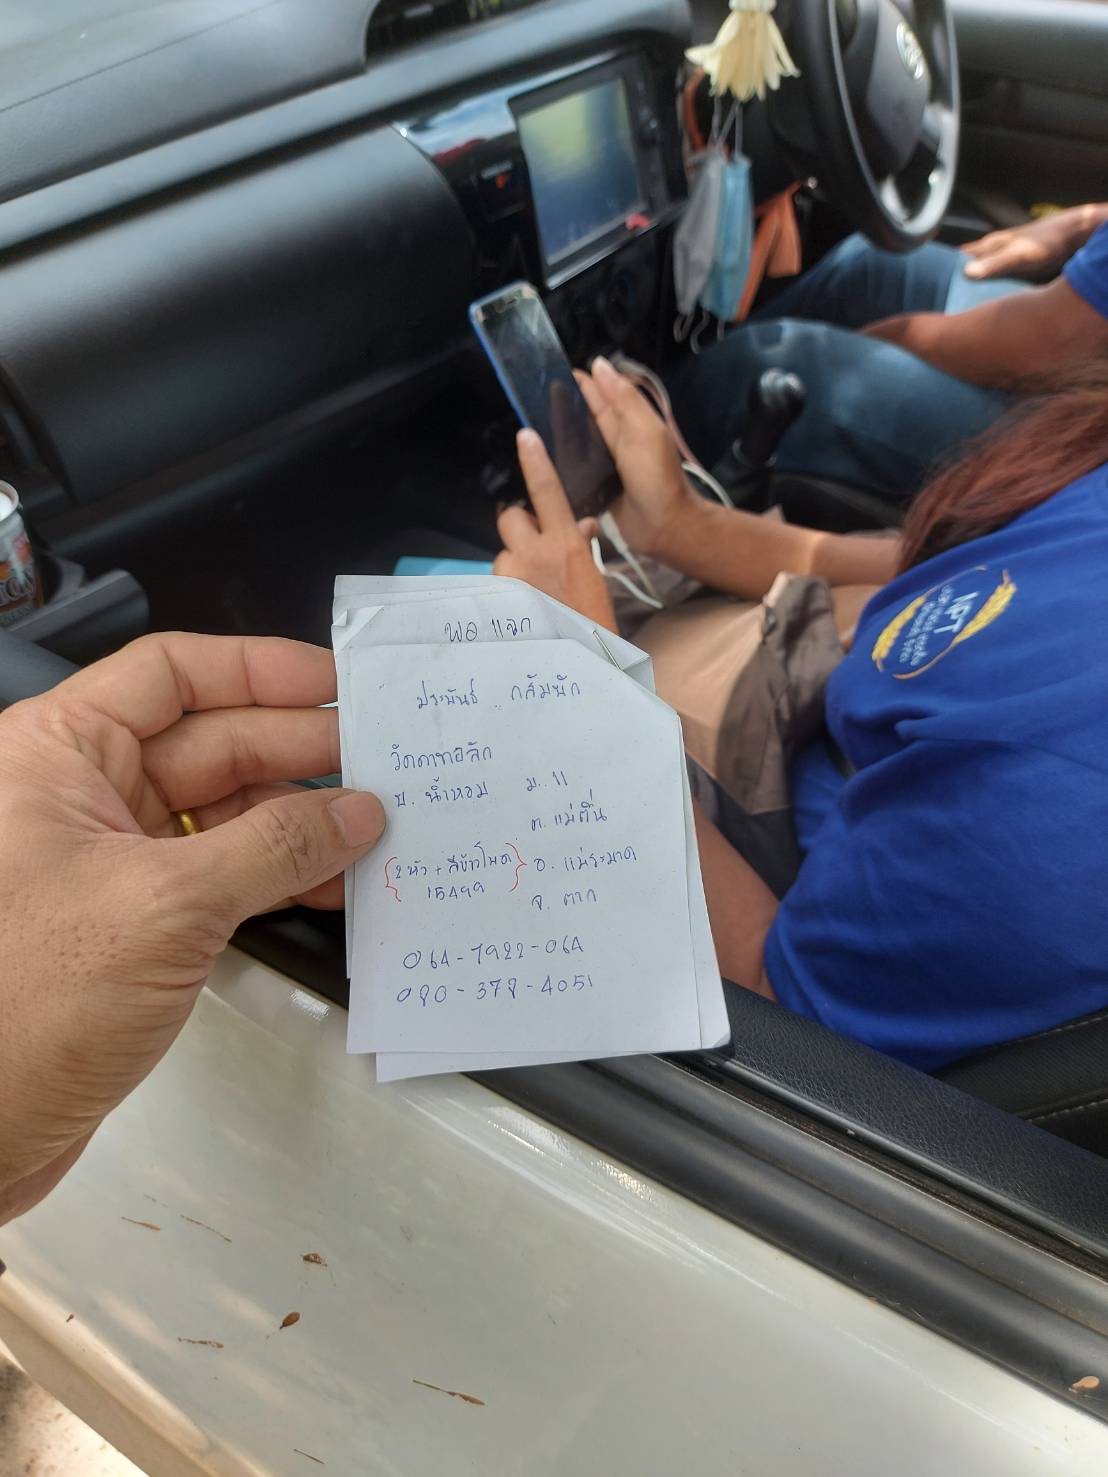 พอ แจก
ประพันธ์ กลัมพัก
วัดดาทอลัก
ซ. น้ำหอม ม. 11
ต. แม่ตื่น
{2 หัว + สีข้าวโพด} อ. แม่ระมาด
15499
จ. ตาก
064-7922-064
080-378-4051
NPT